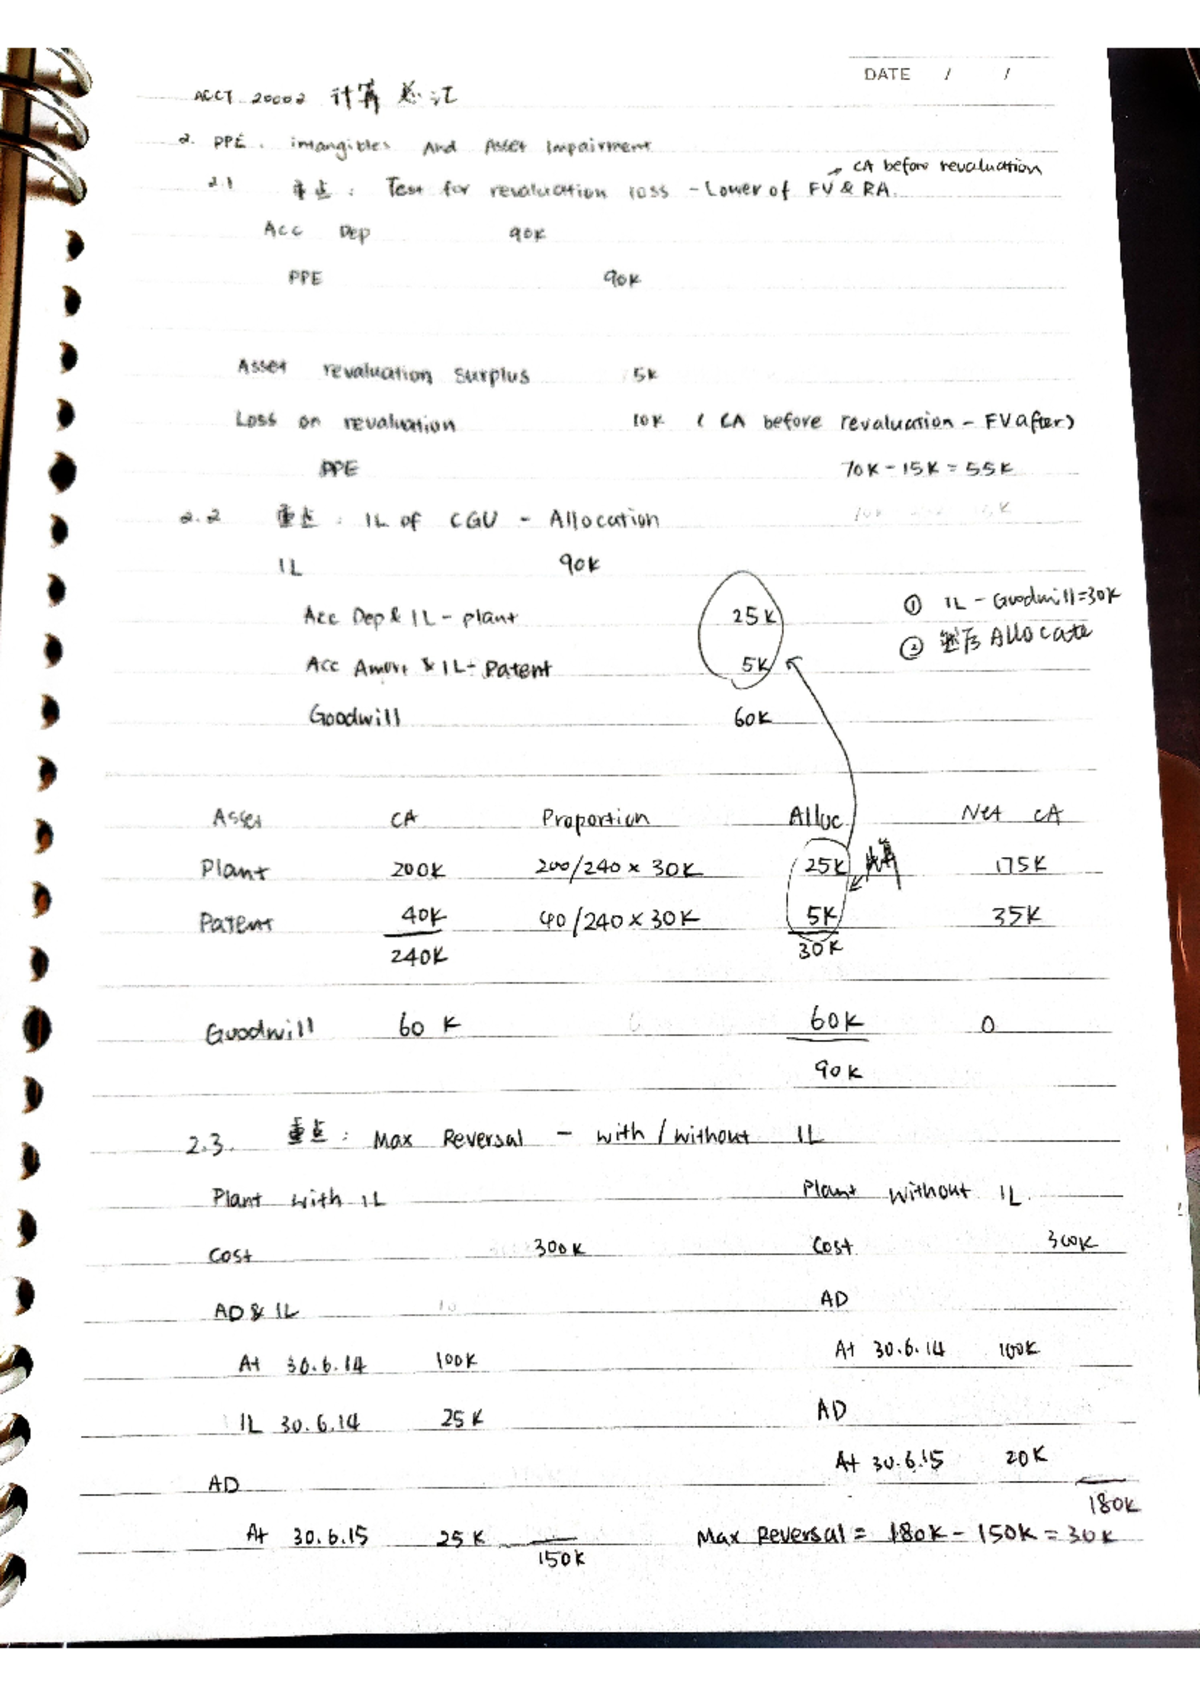 DATE / /
ACCT 20002 计算总汇
2. PPE. intangibles And Asset Impairment
→ CA before revaluation
2.1 重点: Test for revaluation loss - Lower of FV & RA.
Acc Dep 90K
PPE 90K
Asset revaluation surplus 5K
Loss on revaluation 10K ( CA before revaluation - FV after)
PPE 70K - 15K = 55K
2.2 重点: IL of CGU - Allocation
IL 90K
Acc Dep & IL - plant 25K ① IL - Goodwill = 30K
Acc Amort & IL - Patent 5K ② 然后 Allocate
Goodwill 60K
Asset CA Proportion Alloc. Net CA
Plant 200K 200/240 × 30K 25K 175K
Patent 40K 40/240 × 30K 5K 35K
240K 30K
Goodwill 60 K 60K 0
90K
2.3. 重点: Max Reversal - with / without IL
Plant with IL Plant without IL
Cost 300K Cost 300K
AD & IL AD
At 30.6.14 100K At 30.6.14 100K
IL 30.6.14 25K AD
AD At 30.6.15 20K
180K
At 30.6.15 25K Max Reversal = 180K - 150K = 30K
150K